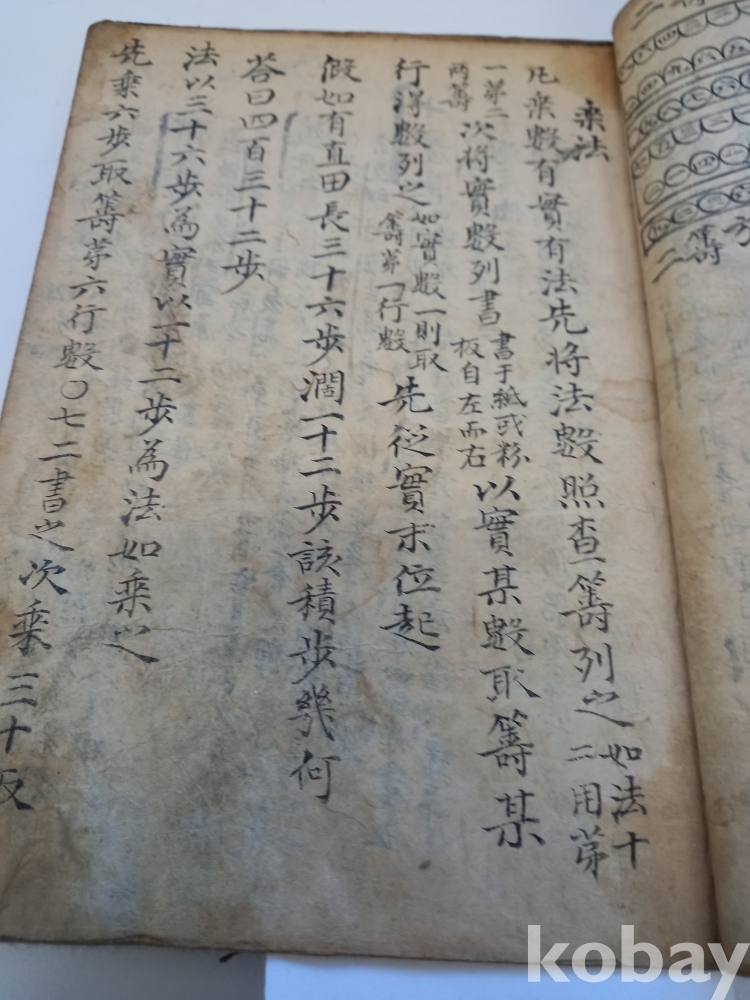 乘法
凡乘數有實有法先將法數照查籌列之如法十二用苐
一苐二兩籌次將實數列書書于紙或粉板自左而右以實某數取籌某
行得數列之如實數一則取籌苐一行數先從實末位起
假如有直田長三十六步濶一十二步該積步幾何
答曰四百三十二步
法以三十六步為實以一十二步為法如乘之
先乘六步取籌苐六行數〇七二書之次乘三十反
二籌方
kobay